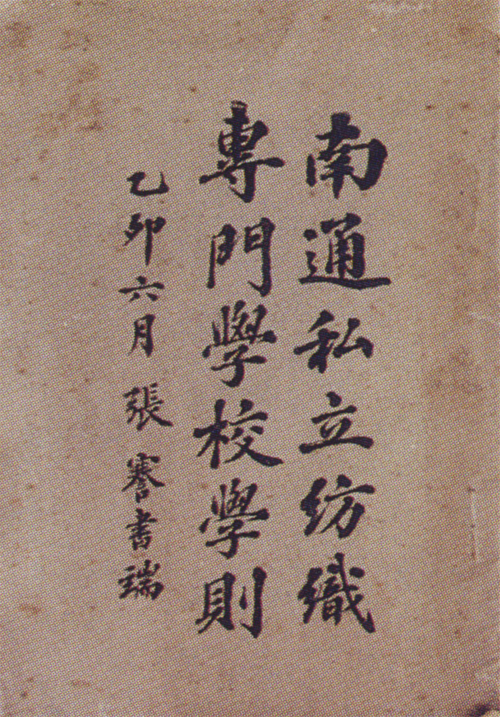 南通私立紡織
專門學校學則
乙卯六月 張謇書端